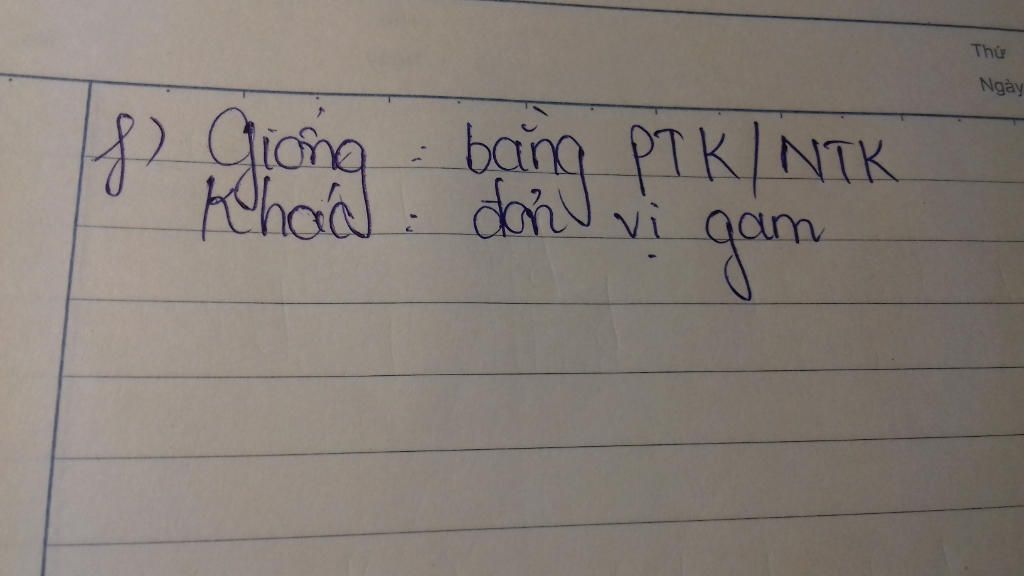 Thứ
Ngày
f) Giống : bằng PTK/NTK
Khác : đơn vị gam